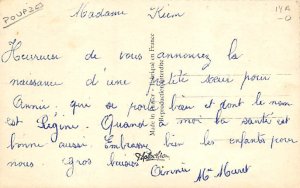 POUP262
Madame Keim
Heureuse de vous annoncer la
naissance d'une petite sœur pour
Annie. que se porte bien et dont le nom
est Régine. Quand à moi la santé est
bonne aussi. Embrasse bien les enfants pour
nous. gros baisers
Made in France - Fabriqué en France
Reproduction interdite